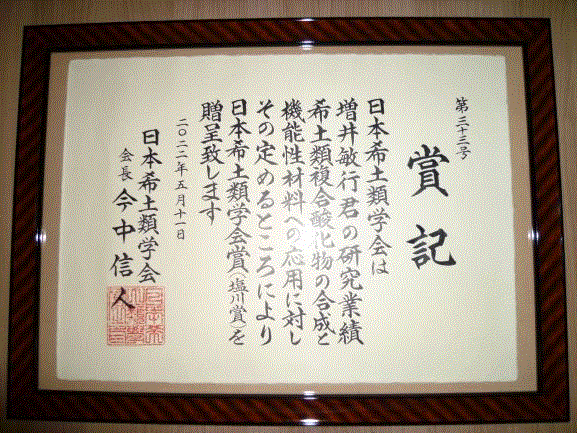 第三十三号
賞記
日本希土類学会は
増井敏行君の研究業績
希土類複合酸化物の合成と
機能性材料への応用に対し
その定めるところにより
日本希土類学会賞（塩川賞）を
贈呈致します
二〇二二年五月十一日
日本希土類学会
会長 今中信人